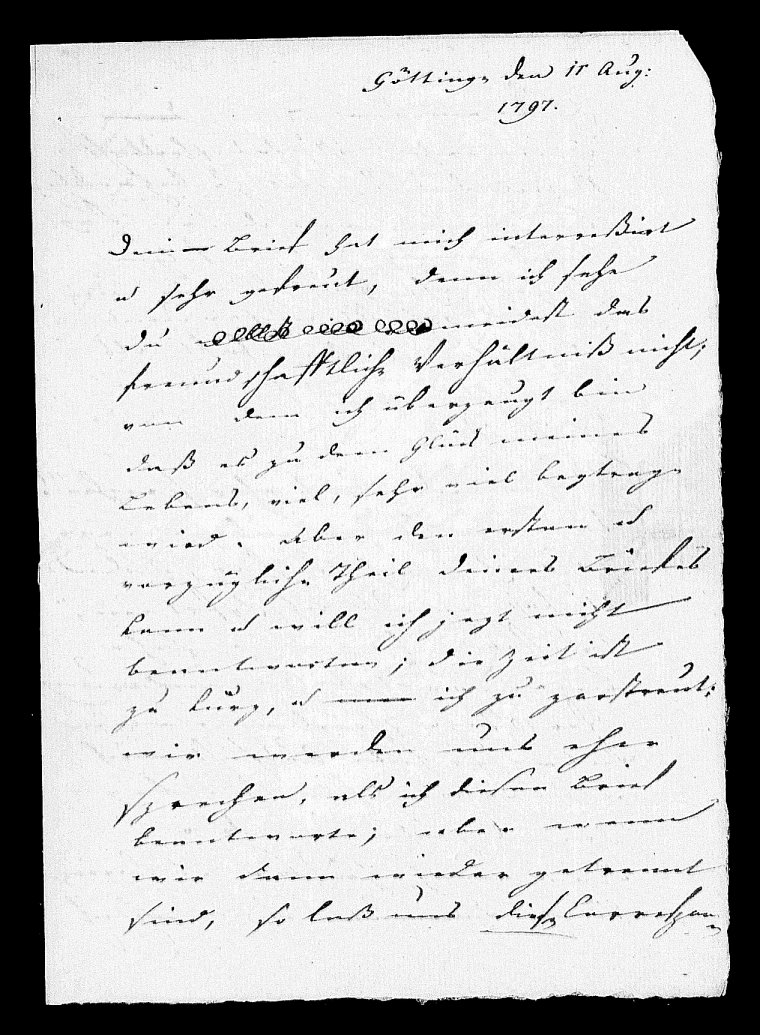 Götting den 11 Aug:
1797.
Dein Brief hat mich interreßirt
u sehr gefreut, denn ich sehe
du meidest das
freundschafftliche Verhältniß nicht,
von dem ich überzeugt bin
daß es zu dem Glück meines
Lebens, viel, sehr viel beytragen
wird. Aber den ersten u
vorzügliche Theil deines Briefes
kann u will ich jezt nicht
beantworten; die Zeit ist
zu kurz, u ich zu zerstreut;
wir werden uns eher
sprechen, als ich diesen Brief
beantworte; aber wenn
wir dann wieder getrennt
sind, so laß uns diese Correspon